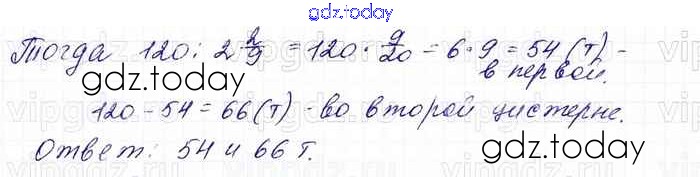 gdz.today
Тогда 120 : 2 2/9 = 120 · 9/20 = 6 · 9 = 54 (т) -
в первой.
gdz.today
120 - 54 = 66 (т) - во второй цистерне.
Ответ: 54 и 66 т.
gdz.today